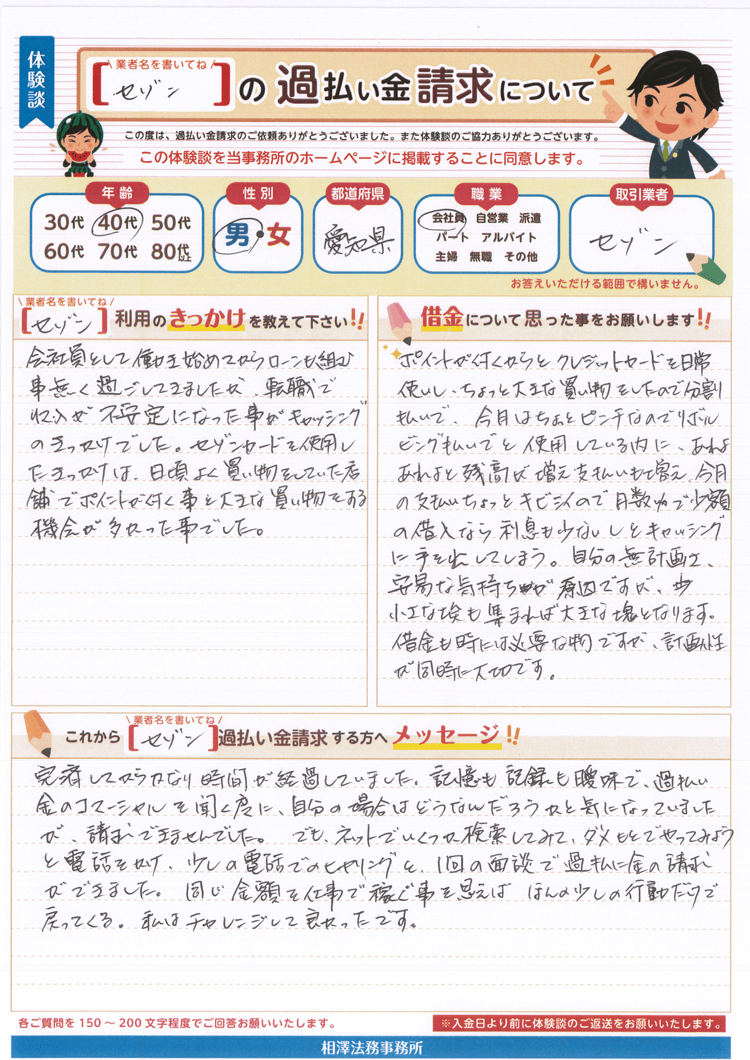 体験談
\ 業者名を書いてね /
[セゾン]の過払い金請求について
この度は、過払い金請求のご依頼ありがとうございました。また体験談のご協力ありがとうございます。
この体験談を当事務所のホームページに掲載することに同意します。
年齢
30代 40代 50代
60代 70代 80代以上
性別
男・女
都道府県
愛知県
職業
会社員 自営業 派遣
パート アルバイト
主婦 無職 その他
取引業者
セゾン
お答えいただける範囲で構いません。
\ 業者名を書いてね /
[セゾン]利用のきっかけを教えて下さい!!
会社員として働き始めてからローンも組む
事無く過ごしてきましたが、転職で
収入が不安定になった事がキャッシング
のきっかけでした。セゾンカードを使用し
たきっかけは、日頃よく買い物をしていた店
舗でポイントが付く事と大きな買い物をする
機会が多かった事でした。
借金について思った事をお願いします!!
ポイントが付くからとクレジットカードを日常
使いし、ちょっと大きな買い物をしたので分割
払いで、今月はちょとピンチなのでリボル
ビング払いでと使用している内に、あれよ
あれよと残高が増え支払いも増え、今月
の支払いちょっとキビシイので月数か で少額
の借入なら利息も少ないしとキャッシング
に手を出してしまう。自分の無計画さ、
安易な気持ちが原因ですが、
小さな も集まれば大きな塊となります。
借金も時には必要な物ですが、計画性
が同時に大切です。
\ 業者名を書いてね /
これから[セゾン]過払い金請求する方へメッセージ!!
完済してからかなり時間が経過していました。記憶も記録も曖昧で、過払い
金のコマーシャルを聞く度に、自分の場合はどうなんだろうかと気になっていました
が、請求できませんでした。 でも、ネットでいくつか検索してみて、ダメもとでやってみよう
と電話をかけ、少しの電話でのヒヤリングと、1回の面談で過払い金の請求
ができました。 同じ金額を仕事で稼ぐ事を思えば ほんの少しの行動だけで
戻ってくる。私はチャレンジして良かったです。
各ご質問を150～200文字程度でご回答お願いいたします。
※入金日より前に体験談のご返送をお願いいたします。
相澤法務事務所